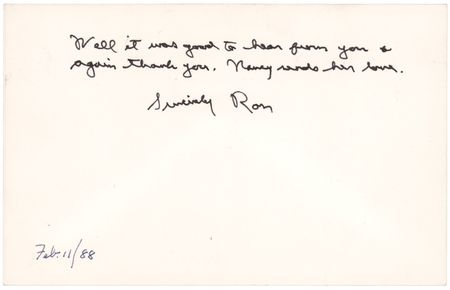 Well it was good to hear from you &
again thank you. Nancy sends her love.
Sincerely Ron
Feb. 11/88